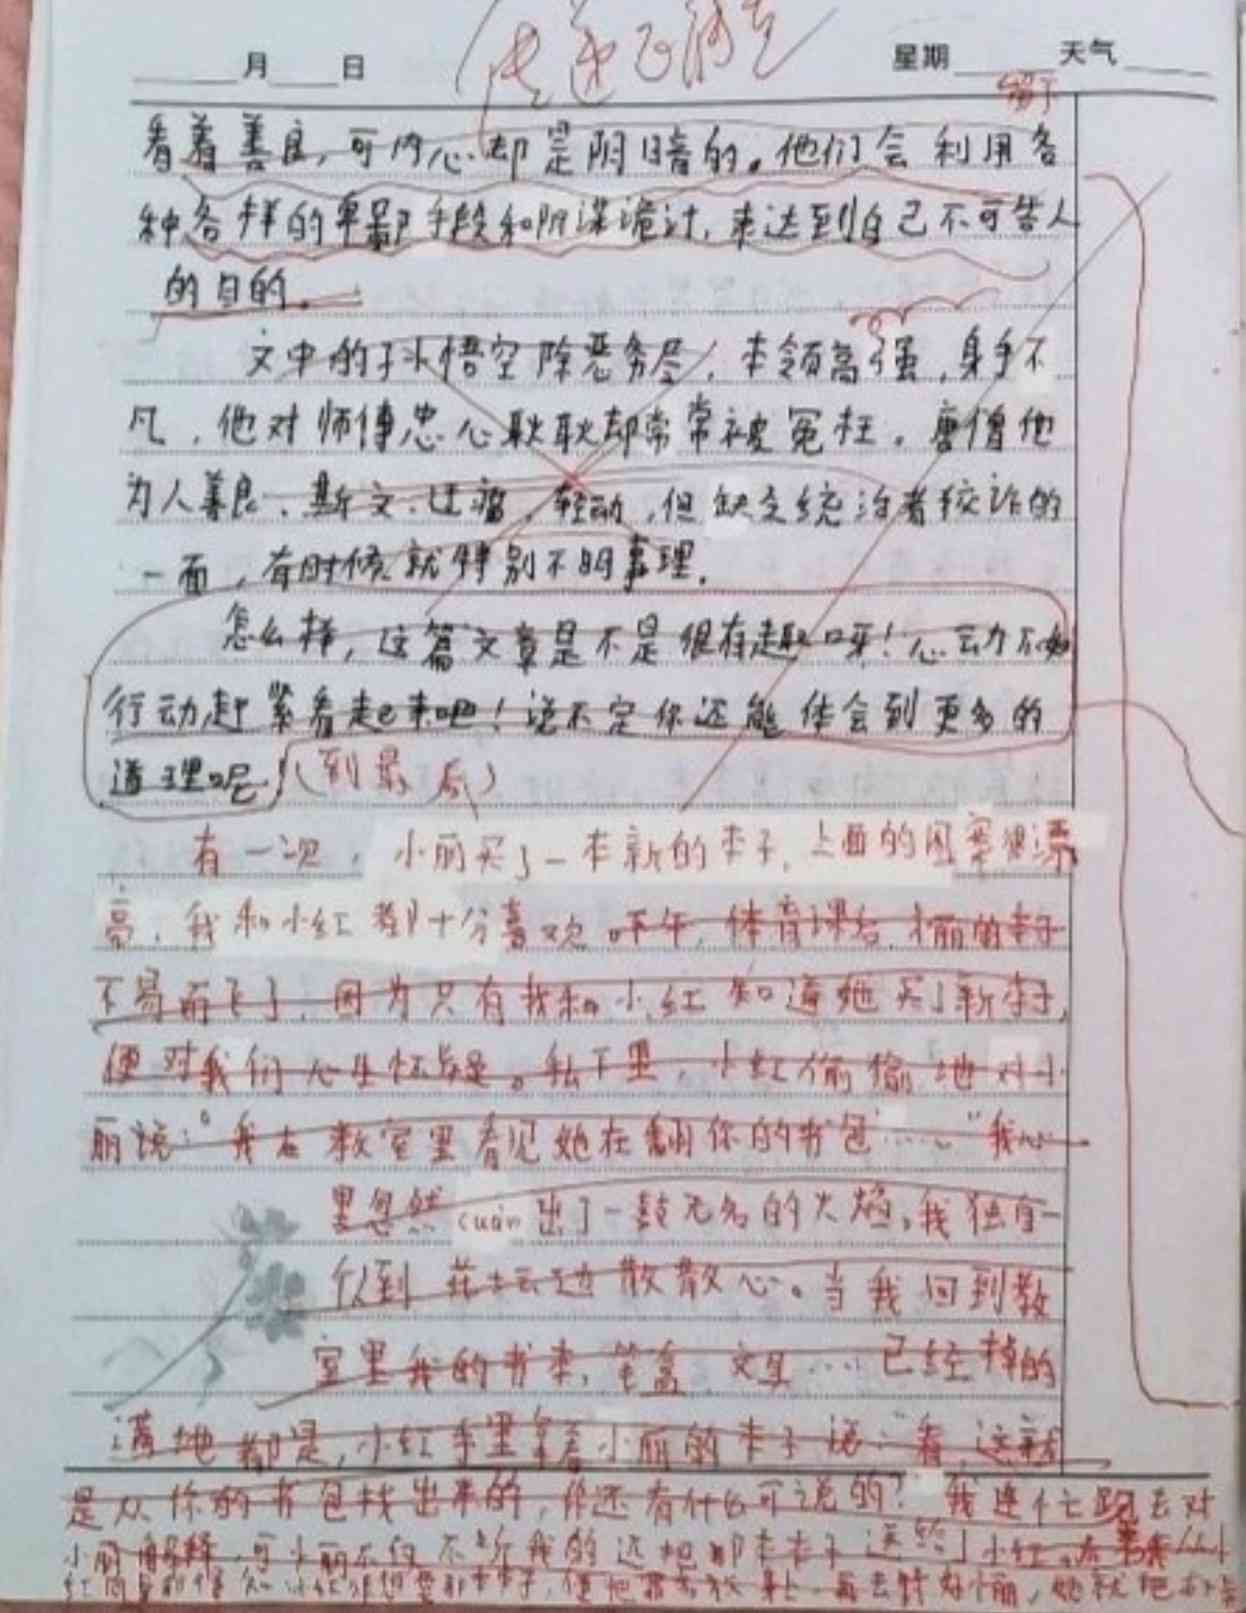 月 日 星期 天气
看着善良,可内心却是阴暗的。他们会利用各
种各样的卑鄙手段和阴谋诡计,来达到自己不可告人
的目的。
文中的孙悟空除恶务尽,本领高强,身手不
凡,他对师傅忠心耿耿却常常被冤枉。唐僧他
为人善良、斯文、迂腐,轻动,但缺乏统治者狡诈的
一面,有时候就特别不明事理。
怎么样,这篇文章是不是很有趣呀!心动不如
行动赶紧看起来吧!说不定你还能体会到更多的
道理呢 (到最后)
有一次,小丽买了一本新的本子,上面的图案很漂
亮,我和小红都十分喜欢。下午,体育课后,小丽的本子
不易而飞了,因为只有我和小红知道她买了新本子,
便对我们心生怀疑。私下里,小红偷偷地对小
丽说:“我在教室里看见她在翻你的书包……”我心
里忽然cuán出了一鼓无名的火焰,我独自一
个人到花坛边散散心。当我回到教
室里我的书本,笔盒,文具……已经掉的
满地都是,小红手里拿着小丽的本子说:“看,这就
是从你的书包找出来的,你还有什么可说的?”我连忙跑去对
小丽解释,可小丽不仅不听我的还把那本本子送给了小红。